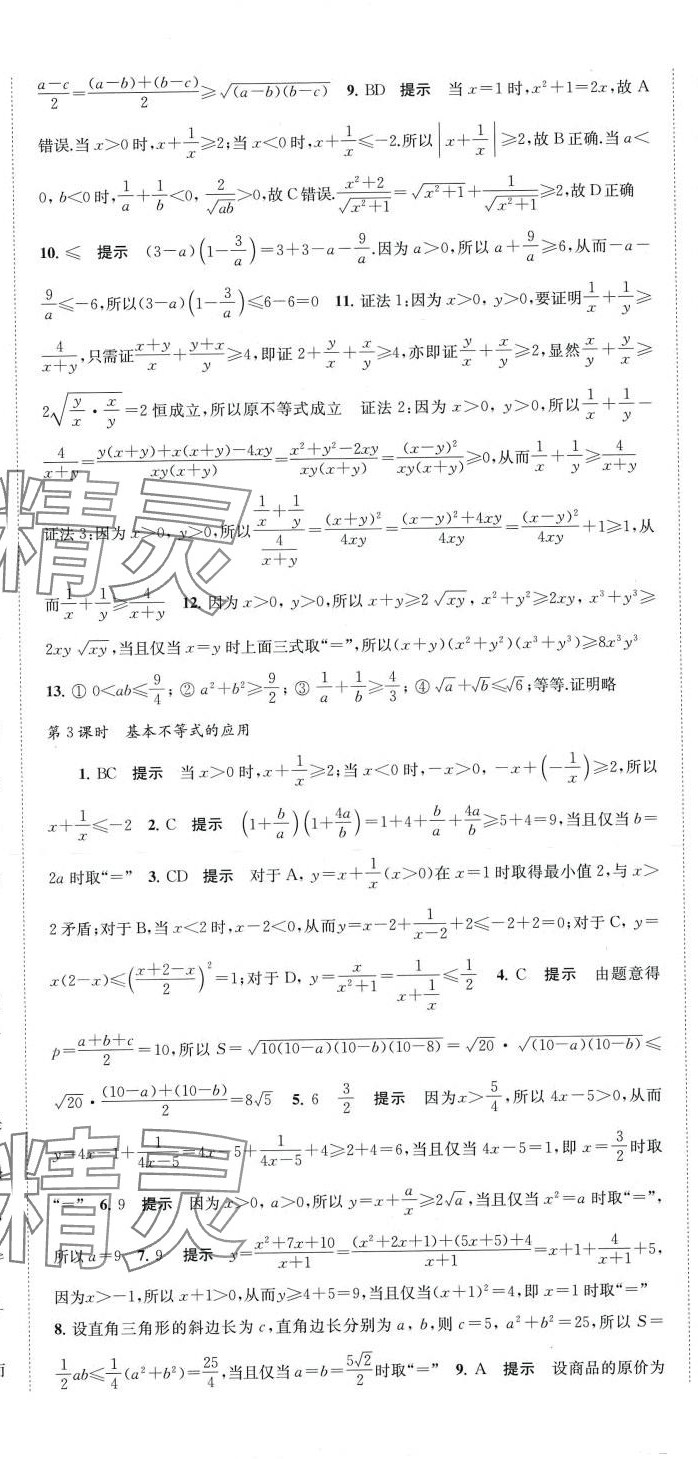 (a-c)/2=((a-b)+(b-c))/2≥√((a-b)(b-c))　9. BD　提示　当 x=1 时,x²+1=2x,故 A
错误.当 x>0 时,x+1/x≥2;当 x<0 时,x+1/x≤-2.所以|x+1/x|≥2,故 B 正确.当 a<
0, b<0 时,1/a+1/b<0, 2/√(ab)>0,故 C 错误.(x²+2)/√(x²+1)=√(x²+1)+1/√(x²+1)≥2,故 D 正确
10. ≤　提示　(3-a)(1-3/a)=3+3-a-9/a.因为 a>0,所以 a+9/a≥6,从而-a-
9/a≤-6,所以(3-a)(1-3/a)≤6-6=0　11. 证法 1:因为 x>0, y>0,要证明1/x+1/y≥
4/(x+y),只需证(x+y)/x+(y+x)/y≥4,即证 2+y/x+x/y≥4,亦即证y/x+x/y≥2,显然x/y+y/x≥
2√(y/x · x/y)=2 恒成立,所以原不等式成立　证法 2:因为 x>0, y>0,所以1/x+1/y-
4/(x+y)=(y(x+y)+x(x+y)-4xy)/(xy(x+y))=(x²+y²-2xy)/(xy(x+y))=(x-y)²/(xy(x+y))≥0,从而1/x+1/y≥4/(x+y)
证法 3:因为 x>0, y>0,所以(1/x+1/y)/(4/(x+y))=(x+y)²/(4xy)=((x-y)²+4xy)/(4xy)=(x-y)²/(4xy)+1≥1,从
而1/x+1/y≥4/(x+y)　12. 因为 x>0, y>0,所以 x+y≥2√(xy), x²+y²≥2xy, x³+y³≥
2xy√(xy),当且仅当 x=y 时上面三式取“=”,所以(x+y)(x²+y²)(x³+y³)≥8x³y³
13. ① 0<ab≤9/4; ② a²+b²≥9/2; ③ 1/a+1/b≥4/3; ④ √a+√b≤√6;等等.证明略
第 3 课时　基本不等式的应用
1. BC　提示　当 x>0 时,x+1/x≥2;当 x<0 时,-x>0, -x+(-1/x)≥2,所以
x+1/x≤-2　2. C　提示　(1+b/a)(1+4a/b)=1+4+b/a+4a/b≥5+4=9,当且仅当 b=
2a 时取“=”　3. CD　提示　对于 A, y=x+1/x(x>0)在 x=1 时取得最小值 2,与 x>
2 矛盾;对于 B,当 x<2 时,x-2<0,从而y=x-2+1/(x-2)+2≤-2+2=0;对于 C, y=
x(2-x)≤((x+2-x)/2)²=1;对于 D, y=x/(x²+1)=1/(x+1/x)≤1/2　4. C　提示　由题意得
p=(a+b+c)/2=10,所以 S=√(10(10-a)(10-b)(10-8))=√20 · √((10-a)(10-b))≤
√20 · ((10-a)+(10-b))/2=8√5　5. 6　3/2　提示　因为x>5/4,所以 4x-5>0,从而
y=4x-1+1/(4x-5)=4x-5+1/(4x-5)+4≥2+4=6,当且仅当 4x-5=1,即 x=3/2时取
“=”　6. 9　提示　因为 x>0, a>0,所以 y=4x+a/x≥2√a,当且仅当 x²=a 时取“=”,
所以 a=9　7. 9　提示　y=(x²+7x+10)/(x+1)=((x²+2x+1)+(5x+5)+4)/(x+1)=x+1+4/(x+1)+5,
因为x>-1,所以 x+1>0,从而y≥4+5=9,当且仅当(x+1)²=4,即 x=1 时取“=”
8. 设直角三角形的斜边长为 c,直角边长分别为 a, b,则 c=5, a²+b²=25,所以 S=
1/2ab≤1/4(a²+b²)=25/4,当且仅当 a=b=5√2/2时取“=”　9. A　提示　设商品的原价为
精灵
精灵